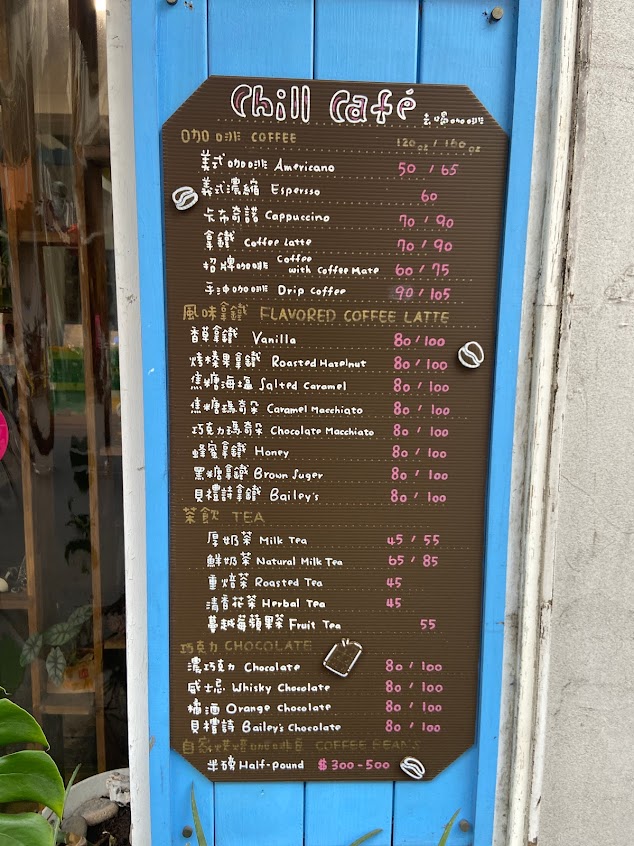 Chill Café 去喝咖啡
咖啡 COFFEE 120oz / 160oz
美式咖啡 Americano 50 / 65
義式濃縮 Espersso 60
卡布奇諾 Cappuccino 70 / 90
拿鐵 Coffee Latte 70 / 90
招牌咖啡 Coffee with Coffee Mate 60 / 75
手沖咖啡 Drip Coffee 90 / 105
風味拿鐵 FLAVORED COFFEE LATTE
香草拿鐵 Vanilla 80 / 100
烤榛果拿鐵 Roasted Hazelnut 80 / 100
焦糖海塩 Salted Caramel 80 / 100
焦糖瑪奇朵 Caramel Macchiato 80 / 100
巧克力瑪奇朵 Chocolate Macchiato 80 / 100
蜂蜜拿鐵 Honey 80 / 100
黑糖拿鐵 Brown Suger 80 / 100
貝禮詩拿鐵 Bailey's 80 / 100
茶飲 TEA
厚奶茶 Milk Tea 45 / 55
鮮奶茶 Natural Milk Tea 65 / 85
重焙茶 Roasted Tea 45
清香花茶 Herbal Tea 45
蔓越莓蘋果茶 Fruit Tea 55
巧克力 CHOCOLATE
濃巧克力 Chocolate 80 / 100
威士忌 Whisky Chocolate 80 / 100
橘酒 Orange Chocolate 80 / 100
貝禮詩 Bailey's Chocolate 80 / 100
自家烘焙咖啡豆 COFFEE BEANS
半磅 Half-Pound $300-500